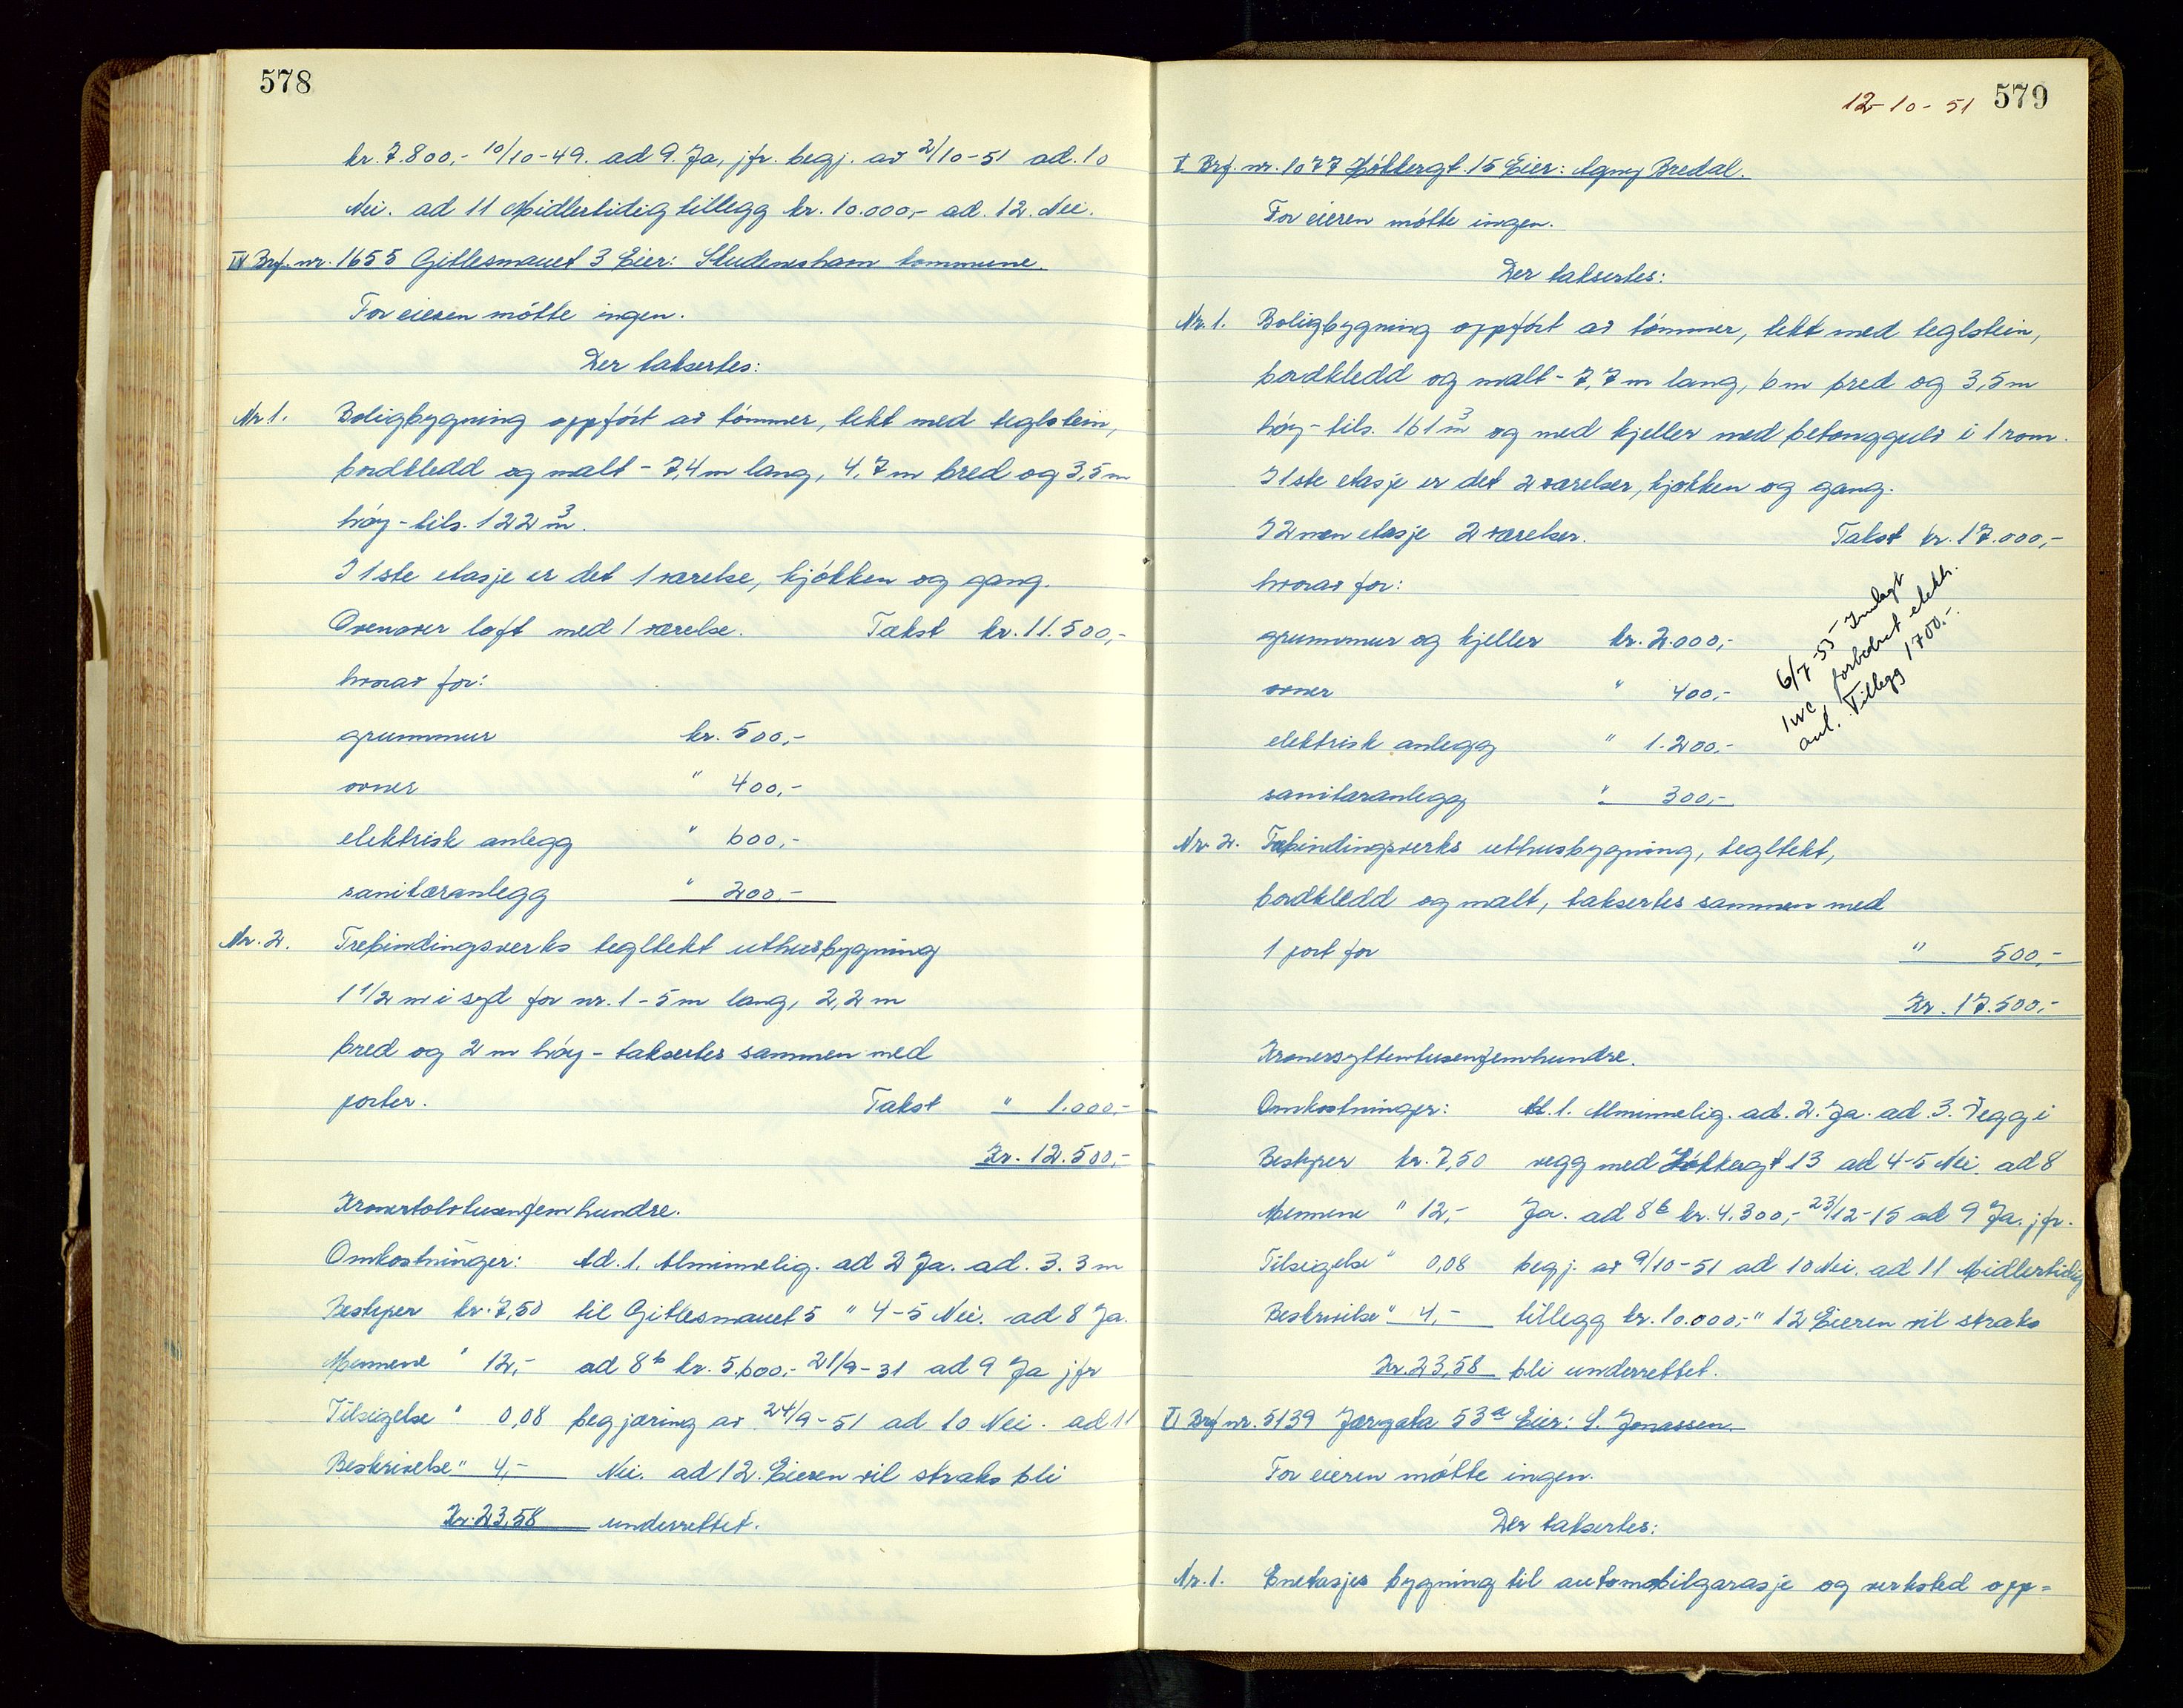 578
kr. 7.800,- 10/10-49. ad 9. Ja, jfr. begj. av 2/10-51 ad. 10
Nei. ad 11 Midlertidig tillegg kr. 10.000,- ad. 12. Nei.
IV Brf. nr. 1655 Gitlesmauet 3 Eier: kommune.
For eieren møtte ingen.
Der taksertes:
Nr. 1. Boligbygning oppført av tømmer, tekt med teglstein,
bordkledd og malt - 7,4 m lang, 4,7 m bred og 3,5 m
høy - tils. 122 m³.
I 1ste etasje er det 1 værelse, kjøkken og gang.
Ovenover loft med 1 værelse. Takst kr. 11.500,-
hvorav for:
grunnmur kr. 500,-
ovner " 400,-
elektrisk anlegg " 600,-
sanitæranlegg " 200,-
Nr. 2. Trebindingsverks tegltekt uthusbygning
1 1/2 m i syd for nr. 1 - 5 m lang, 2,2 m
bred og 2 m høy - taksertes sammen med
porter. Takst " 1.000,-
Kr. 12.500,-
Kronertolvtusenfemhundre.
Omkostninger: Ad. 1. Alminnelig. ad 2 Ja. ad. 3. 3 m
Bestyrer kr. 7,50 til Gitlesmauet 5 " 4-5 Nei. ad 8 Ja.
Mennene " 12,- ad 8b kr. 5.600,- 21/9-31 ad 9 Ja jfr
Tilsigelse " 0,08 begjæring av 24/9-51 ad 10 Nei. ad 11
Beskrivelse " 4,- Nei. ad 12. Eieren vil straks bli
Kr. 23,58 underrettet.
12-10-51 579
V Brf. nr. 1077 Eier: Agny Bredal.
For eieren møtte ingen.
Der taksertes:
Nr. 1. Boligbygning oppført av tømmer, tekt med teglstein,
bordkledd og malt - 7,7 m lang, 6 m bred og 3,5 m
høy - tils. 161 m³ og med kjeller med betonggulv i 1 rom.
I 1ste etasje er det 2 værelser, kjøkken og gang.
I 2nen etasje 2 værelser. Takst kr. 17.000,-
hvorav for:
grunnmur og kjeller kr. 2.000,-
ovner " 400,-
elektrisk anlegg " 1.200,-
sanitæranlegg " 300,-
6/7-53 Innlagt
1 wc forbedret elektr.
anl. Tillegg 1700.-
Nr. 2. Trebindingsverks uthusbygning, tegltekt,
bordkledd og malt, taksertes sammen med
1 port for " 500,-
Kr. 17.500,-
Kronersyttentusenfemhundre.
Omkostninger: Ad. 1. Alminnelig. ad. 2. Ja. ad. 3. Vegg i
Bestyrer kr. 7,50 vegg med 13 ad 4-5 Nei. ad 8
Mennene " 12,- Ja. ad 8b kr. 4.300,- 23/12-15 ad 9 Ja. jfr.
Tilsigelse " 0,08 begj. av 9/10-51 ad 10 Nei. ad 11 Midlertidig
Beskrivelse " 4,- tillegg kr. 10.000,- " 12 Eieren vil straks
Kr. 23,58 bli underrettet.
VI Brf nr. 5139 Jærgata 53a Eier: S. Jonassen.
For eieren møtte ingen.
Der taksertes:
Nr. 1. Enetasjes bygning til automobilgarasje og verksted opp=